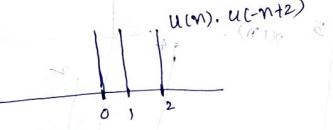 u(n). u(-n+2)
0 1 2